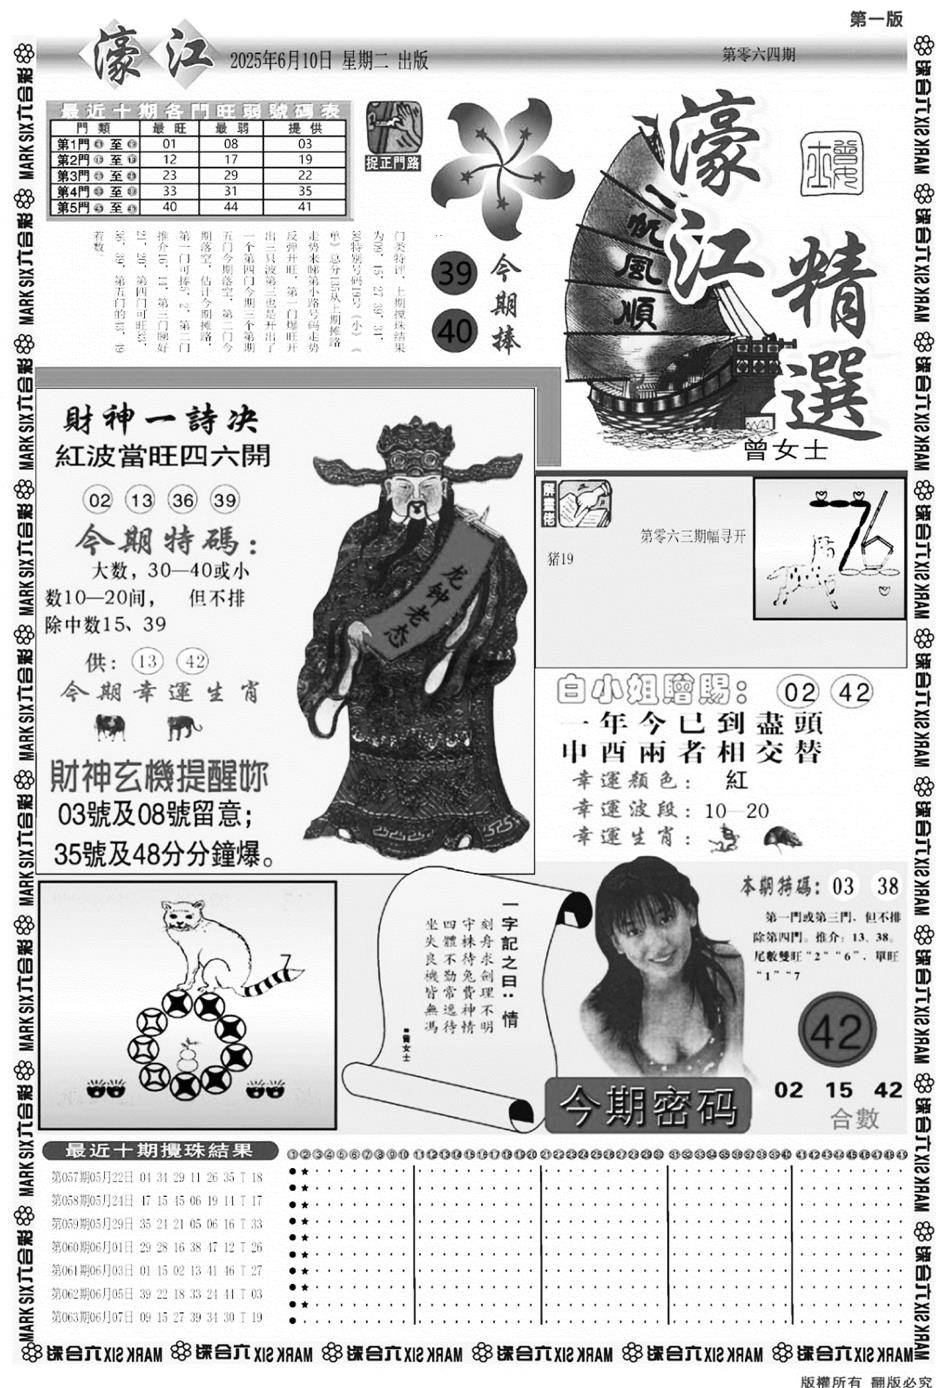 第一版
濠江
2025年6月10日 星期二 出版
第零六四期
最近十期各門旺弱號碼表
門類 最旺 最弱 提供
第1門 至 01 08 03
第2門 至 12 17 19
第3門 至 23 29 22
第4門 至 33 31 35
第5門 至 40 44 41
捉正門路
门类特评，上期搅珠结果
反弹开旺，第一门爆旺开
出三只波第三也是开出了
一个第四门今期三个第期
五门今期落空，第二门今
期落空，估计今期摊路，
39
40
今期捧
一帆風順
濠江
精選
曾女士
財神一詩决
紅波當旺四六開
02 13 36 39
今期特碼：
大数，30—40或小
数10—20间， 但不排
除中数15、39
供：13 42
今期幸運生肖
財神玄機提醒妳
03號及08號留意；
35號及48分分鐘爆。
龙钟老态
第零六三期幅寻开
猪19
白小姐贈賜：02 42
一年今已到盡頭
申酉兩者相交替
幸運顏色：紅
幸運波段：10—20
幸運生肖：
7
一字記之曰：情
刻舟求劍理不明
守株待兔費神情
四體不勤常逸待
坐失良機皆無馮
■曾女士
本期特碼：03 38
第一門或第三門，但不排
除第四門。推介：13、38。
尾數雙旺“2”“6”，單旺
“1”“7
42
今期密码
02 15 42
合數
最近十期攪珠結果
第057期05月22日 04 34 29 11 26 35 T 18
第058期05月24日 47 15 45 06 19 14 T 17
第059期05月29日 35 24 21 05 06 16 T 33
第060期06月01日 29 28 16 38 47 12 T 26
第061期06月03日 01 15 02 13 41 46 T 27
第062期06月05日 39 22 18 33 24 44 T 03
第063期06月07日 09 15 27 39 34 30 T 19
MARK SIX六合彩
版權所有 翻版必究